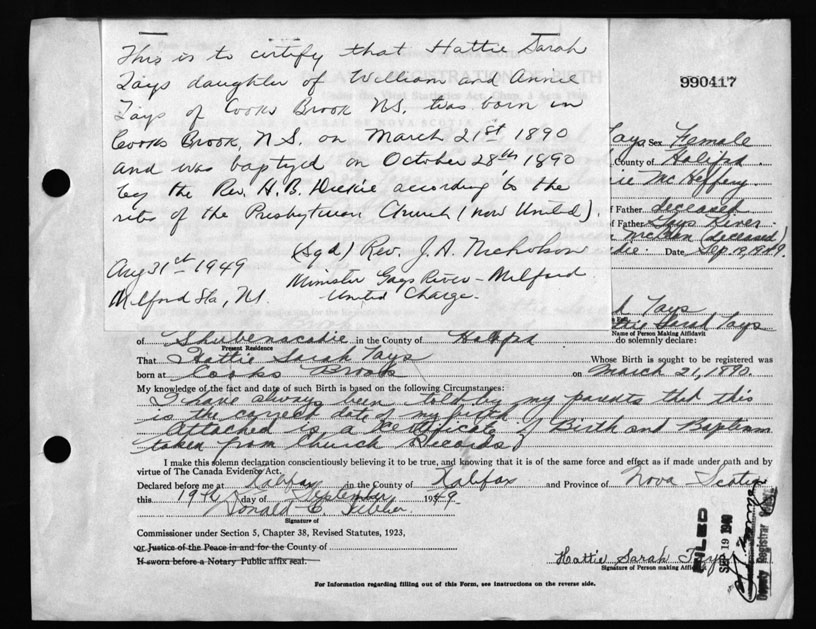 This is to certify that Hattie Sarah
Tays daughter of William and Annie
Tays of Cooks Brook N.S. was born in
Cooks Brook, N.S. on March 21st 1890
and was baptized on October 28th 1890
by the Rev. H.B. Dickie according to the
rites of the Presbyterian Church (now United).
(Sgd) Rev. J.A. Nicholson
Aug 31st 1949
Minister Gays River - Milford
Milford Sta, N.S.
United Charge.
990417
Tays Sex Female
County of Halifax.
McHeffery
f Father deceased
f Father Gays River.
(deceased)
Date Sep. 19, 1949.
Tays
Hattie Sarah Tays
Name of Person Making Affidavit
of Shubenacadie in the County of Halifax do solemnly declare:
Present Residence
That Hattie Sarah Tays Whose Birth is sought to be registered was
born at Cooks Brook on March 21, 1890.
My knowledge of the fact and date of such Birth is based on the following Circumstances:
I have always been told by my parents that this
is the correct date of my birth.
Attached is a Certificate of Birth and Baptism
taken from Church Records
I make this solemn declaration conscientiously believing it to be true, and knowing that it is of the same force and effect as if made under path and by
virtue of The Canada Evidence Act.
Declared before me at Halifax in the County of Halifax and Province of Nova Scotia
this 19th day of September 1949
Donald C.
Signature of
Commissioner under Section 5, Chapter 38, Revised Statutes, 1923,
or Justice of the Peace in and for the County of
If sworn before a Notary Public affix seal.
Hattie Sarah Tays
Signature of Person making Affidavit
FILED
SEP 19 1949
Deputy Registrar
For Information regarding filling out of this Form, see Instructions on the reverse side.